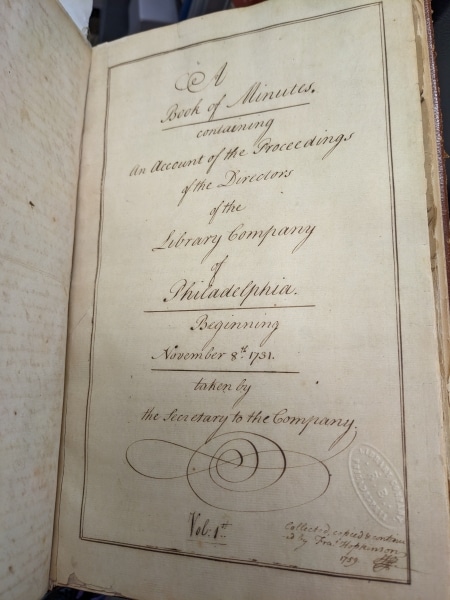 A
Book of Minutes.
containing
An Account of the Proceedings
of the Directors
of the
Library Company
of
Philadelphia.
Beginning
November 8th. 1731.
taken by
the Secretary to the Company.
Vol: 1st
Collected, copied & continu
ed by Fras. Hopkinson
1759